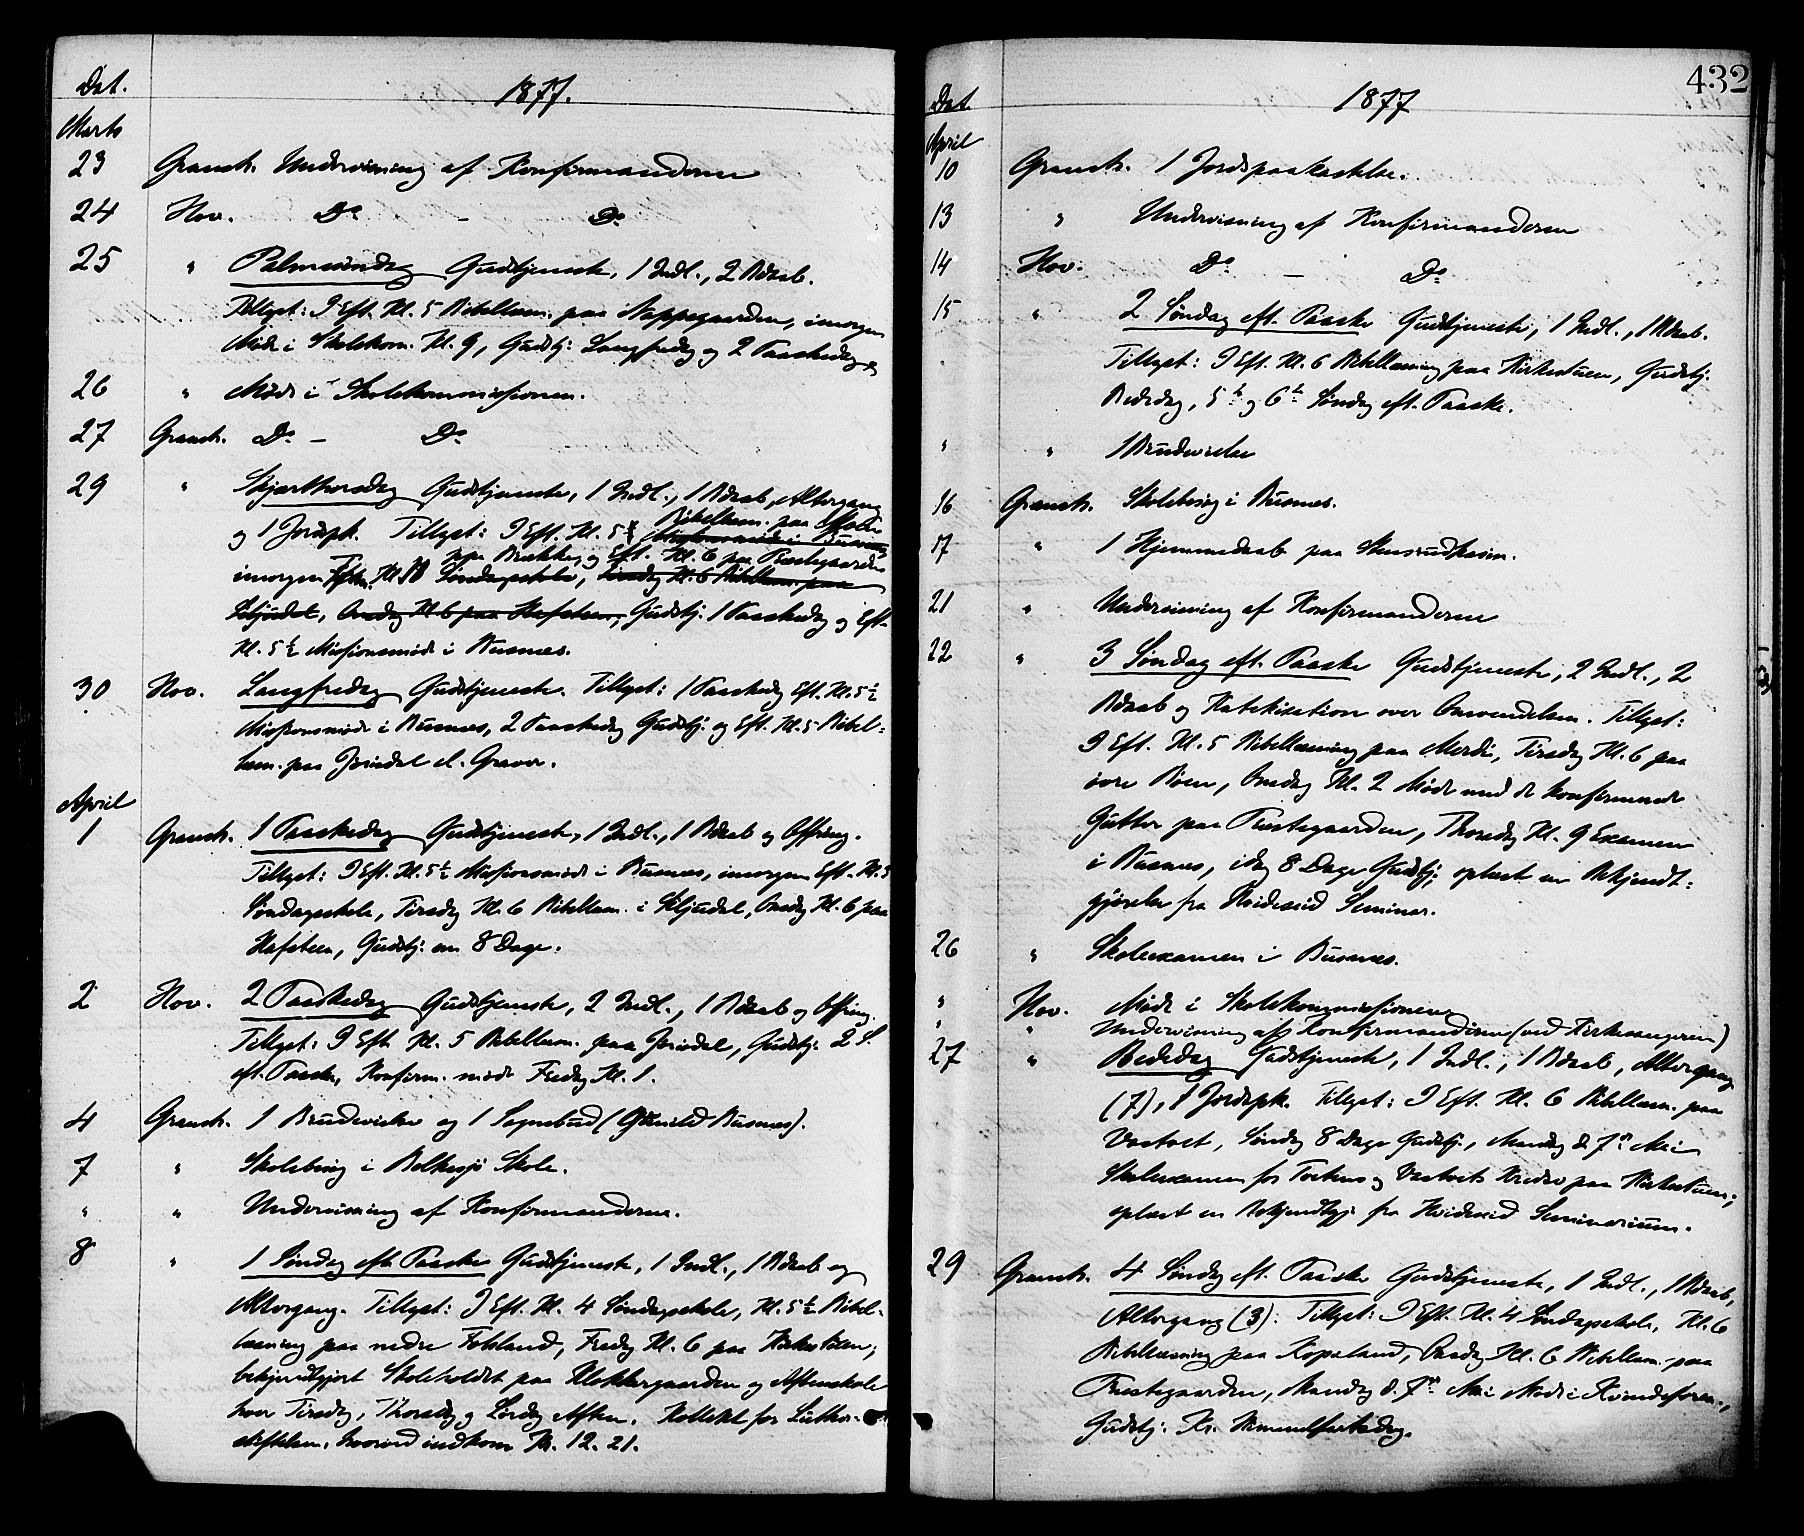 Dat. 1877.
Marts
23 Gransh. Undervisning af Konfirmanderne
24 Hov. Do - Do
25 " Palmesøndag Gudstjeneste, 1 Indl., 2 Bdaab.
Tillyst: I Eft. Kl. 5 Bibellæsn. paa Nappegaarden, imorgen
Møde i Skolekom. Kl. 9, Gudstj. Langfredag og 2 Paaskedag
26 " Møde i Skolekommissionen.
27 Gransh. Do - Do
29 " Skjærthorsdag Gudstjeneste, 1 Indl., 1 Bdaab, Altergang
og 1 Jordpk. Tillyst: I Eft. Kl. 5½ Bibellæsn. paa
imorgen Eft. Kl. Søndagsskole, Tirsdag Kl. 6 Bibellæsn. paa
Skjudel, Onsdag Kl. 6 paa Hafsteen, Gudstj. 1 Paaskedag og Eft.
Kl. 5½ Missionsmøde i Busnes.
30 Hov. Langfredag Gudstjeneste. Tillyst: 1 Paaskedag Eft. Kl. 5½
Missionsmøde i Busnes, 2 Paaskedag Gudstj. og Eft. Kl. 5 Bibel-
læsn. paa Jorndal el. Graver.
April
1 Gransh. 1 Paaskedag Gudstjeneste, 1 Indl., 1 Bdaab og Offring.
Tillyst: I Eft. Kl. 5½ Missionsmøde i Busnes, imorgen Eft. Kl. 5
Søndagsskole, Tirsdag Kl. 6 Bibellæsn. i Skjudel, Onsdag Kl. 6 paa
Hafsteen, Gudstj. om 8 Dage.
2 Hov. 2 Paaskedag Gudstjeneste, 2 Indl., 1 Bdaab og Offring.
Tillyst: I Eft. Kl. 5 Bibellæsn. paa Jorndal, Gudstj. 2 S.
eft. Paaske, Konfirm. møde Fredag Kl. 1.
4 Gransh. 1 Brudevielse og 1 Sognebud (Busnes).
7 " Skolebesøg i Bolkesjø Skole.
" " Undervisning af Konfirmanderne.
8 " 1 Søndag eft. Paaske Gudstjeneste, 1 Indl., 1 Bdaab og
Altergang. Tillyst: I Eft. Kl. 4 Søndagsskole, Kl. 5½ Bibel-
læsning paa nedre Folsland, Fredag Kl. 6 paa Kirkestuen,
bekjendtgjort Skoleholdet paa Klokkergaarden og Aftenskole
hver Tirsdag, Thorsdag og Lørdag Aften. Kollekt for Luther-
stiftelsen, hvorved indkom Kr. 12. 21.
432
Dat. 1877
April
10 Gransh. 1 Jordspaakastelse.
13 " Undervisning af Konfirmanderne
14 Hov. Do - Do
15 " 2 Søndag eft. Paaske Gudstjeneste, 1 Indl., 1 Bdaab.
Tillyst: I Eft. Kl. 6 Bibellæsning paa Kirkestuen, Gudstj.
Bededag, 5te og 6te Søndag eft. Paaske.
" " 1 Brudevielse
16 Gransh. Skolebesøg i Busnes.
17 " 1 Hjemmedaab paa
21 " Undervisning af Konfirmanderne
22 " 3 Søndag eft. Paaske Gudstjeneste, 2 Indl., 2
Bdaab og Katekisation over Omvendelsen. Tillyst:
I Eft. Kl. 5 Bibellæsning paa Merdi, Tirsdag Kl. 6 paa
øvre Bøen, Onsdag Kl. 2 Møde med de konfirmerede
Gutter paa Prestegaarden, Thorsdag Kl. 9 Examen
i Busnes, idag 8 Dage Gudstj., oplæst en Bekjendt-
gjørelse fra Hvideseid Seminar.
26 " Skoleexamen i Busnes.
" Hov. Møde i Skolekommissionen
" " Undervisning af Konfirmanderne (ved Kirkesangeren)
27 " Bededag Gudstjeneste, 1 Indl., 1 Bdaab, Altergang
(7), 1 Jordspk. Tillyst: I Eft. Kl. 6 Bibellæsn. paa
Vastvet, Søndag 8 Dage Gudstj., Mandag d. 7de Mai
Skoleexamen for og Vastvets Kredse paa Kirkestuen;
oplæst en Bekjendtgj. fra Hvideseid Seminarium.
29 Gransh. 4 Søndag eft. Paaske Gudstjeneste, 1 Indl., 1 Bdaab,
Altergang (3): Tillyst: I Eft. Kl. 4 Søndagsskole, Kl. 6
Bibellæsning paa Kopsland, Onsdag Kl. 6 Bibellæsn. paa
Prestegaarden, Mandag d. 7de Mai Møde i Kvindeforen.,
Gudstj. Kr. Himmelfartsdag.